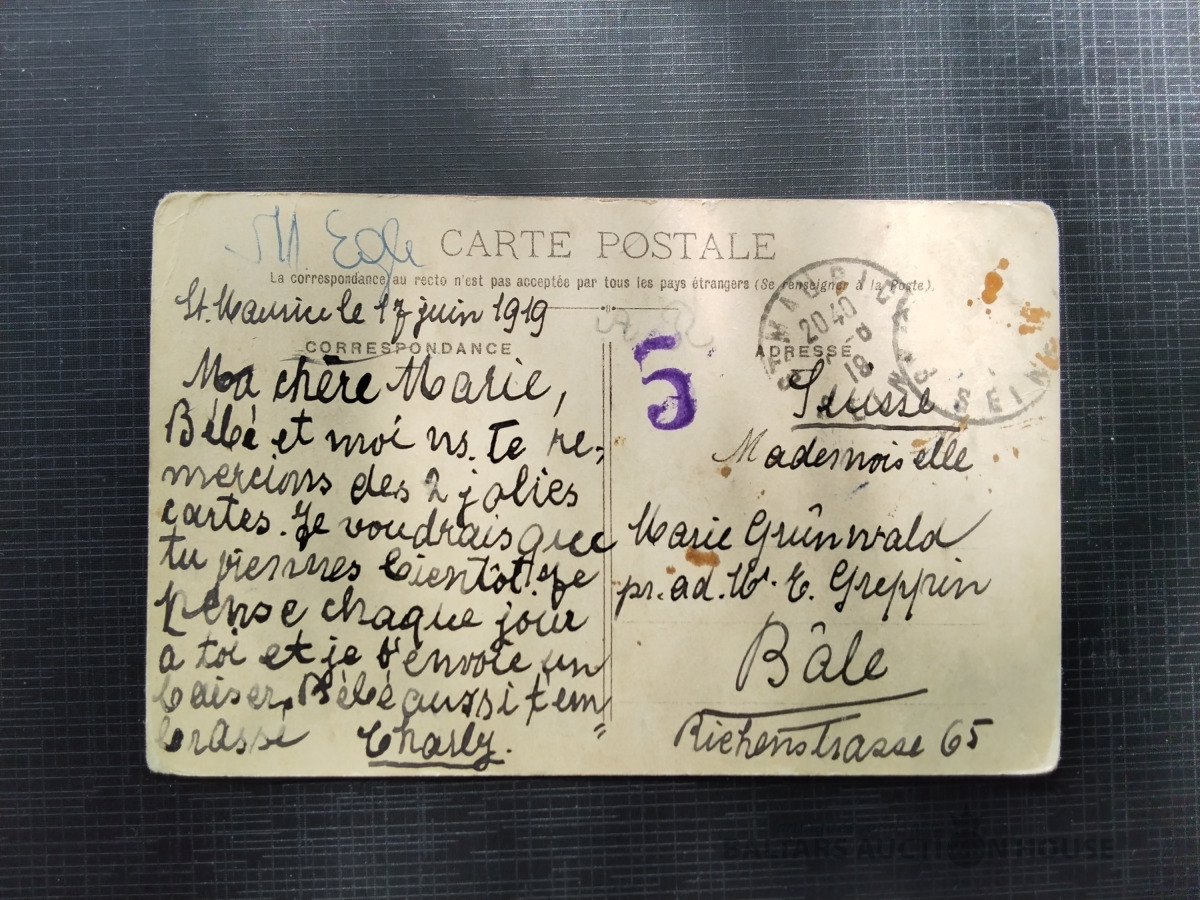 CARTE POSTALE
La correspondance au recto n'est pas acceptée par tous les pays étrangers (Se renseigner à la Poste).
St. Maurice le 17 juin 1919
CORRESPONDANCE
Ma chère Marie,
Bébé et moi ns. te re-
mercions des 2 jolies
cartes. Je voudrais que
tu viennes bientôt! Je
pense chaque jour
a toi et je t'envoie un
baiser. Bébé aussi t'em
brasse
Charly.
5
ADRESSE
Suisse
Mademoiselle
Marie Grûnwald
pr. ad. Mr. E. Greppin
Bâle
Richenstrasse 65
ST MAURICE
20 40
18
SEINE
BALTARS AUCTION HOUSE